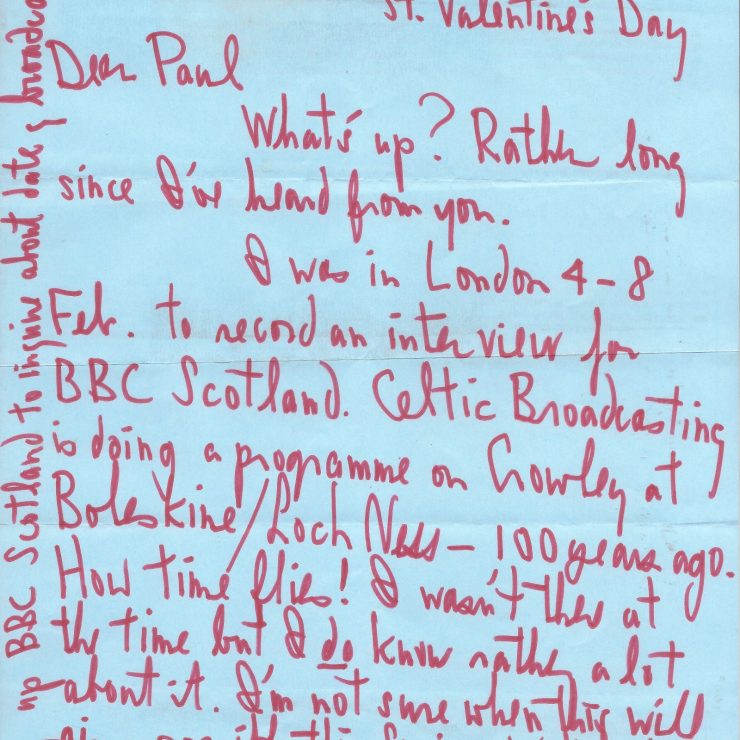 St. Valentine's Day
Dear Paul
What's up? Rather long
since I've heard from you.
I was in London 4 – 8
Feb. to record an interview for
BBC Scotland. Celtic Broadcasting
is doing a programme on Crowley at
Boleskine/Loch Ness – 100 years ago.
How time flies! I wasn't there at
the time but I do know rather a lot
about it. I'm not sure when this will
up BBC Scotland to inquire about date of